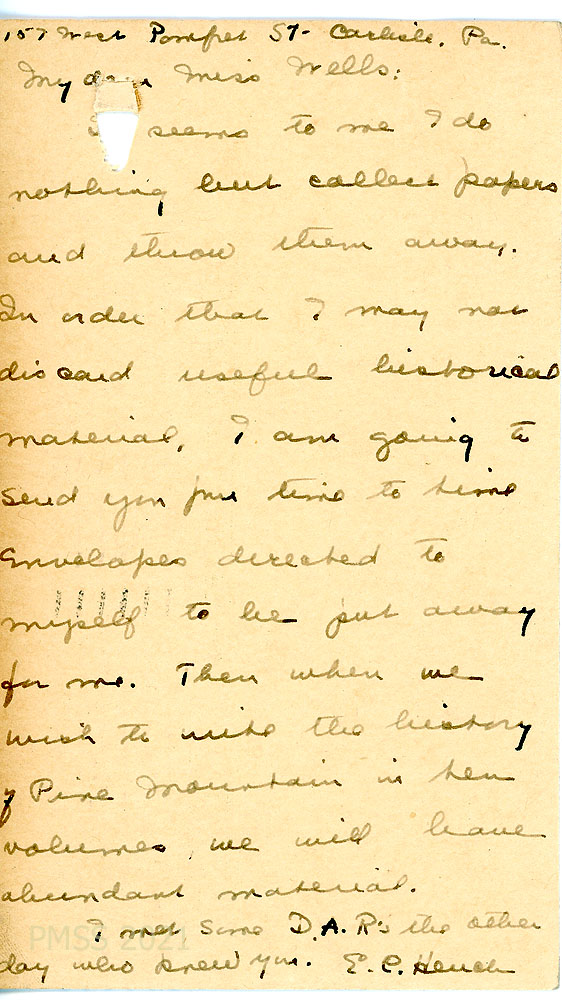 157 West Pomfret St- Carlisle, Pa.
My dear Miss Wells:
It seems to me I do
nothing but collect papers
and throw them away.
In order that I may not
discard useful historical
material, I am going to
send you from time to time
envelopes directed to
myself to be put away
for me. Then when we
wish to write the history
of Pine Mountain in ten
volumes, we will have
abundant material.
I met some D.A.R's the other
day who knew you. E.C. Hench
PMSS 2021